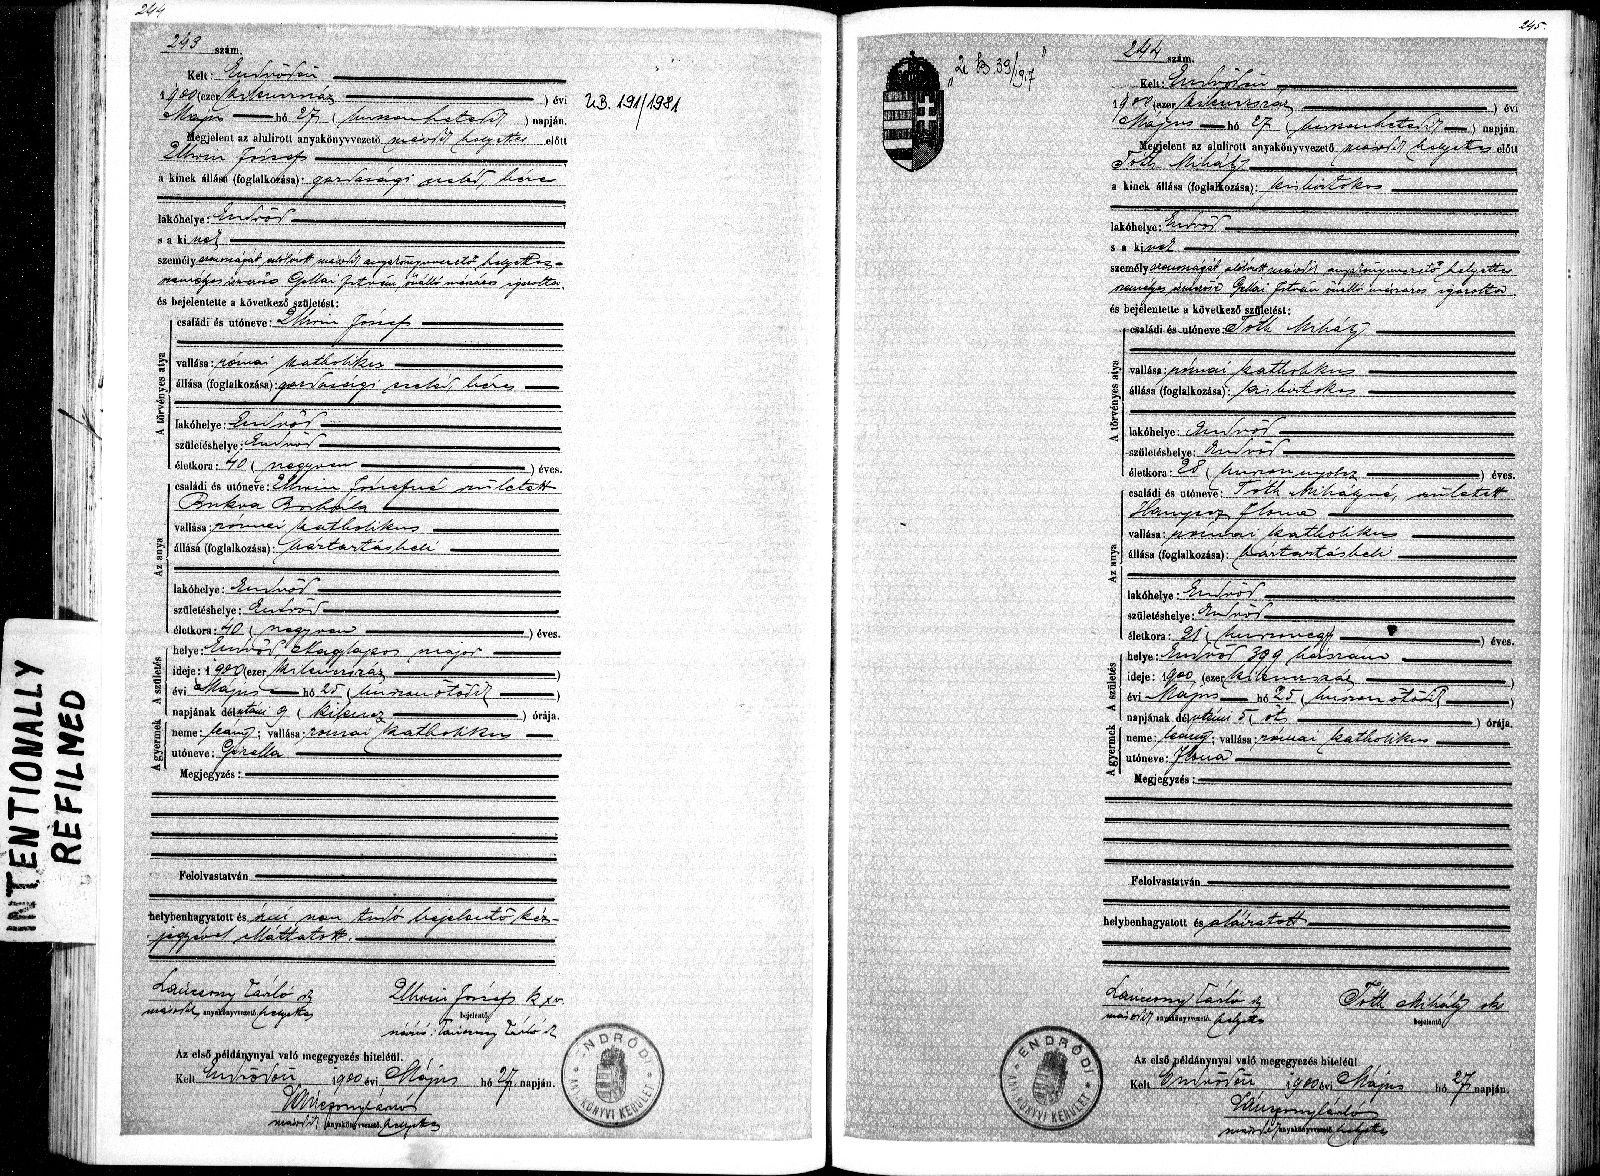 244
243 szám.
Kelt: Endrődön
1900 (ezer kilenczszáz ) évi
Május hó 27 ( huszonhetedik ) napján.
Megjelent az alulirott anyakönyvvezető második helyettes előtt
József
a kinek állása (foglalkozása): gazdasági cseléd, béres
lakóhelye: Endrőd
s a kinek
személyazonosságát alólirott második anyakönyvvezető helyettes
Gellai István önálló mészáros igazolta,
és bejelentette a következő születést:
A törvényes atya
családi és utóneve: József
vallása: római katholikus
állása (foglalkozása): gazdasági cseléd, béres
lakóhelye: Endrőd
születéshelye: Endrőd
életkora: 40 ( negyven ) éves.
Az anya
családi és utóneve: Józsefné született
Borbála
vallása: római katholikus
állása (foglalkozása): háztartásbeli
lakóhelye: Endrőd
születéshelye: Endrőd
életkora: 40 ( negyven ) éves.
A születés
helye: Endrőd Nagylapos major
ideje: 1900 (ezer kilenczszáz )
évi Május hó 25 ( huszonötödik )
napjának délutáni 9 ( kilencz ) órája.
A gyermek
neme: leány; vallása: római katholikus
utóneve: Gizella
Megjegyzés:
Felolvastatván
helybenhagyatott és írni nem tudó bejelentő kéz-
jegyével elláttatott.
Károly
második anyakönyvvezető helyettes
József k xv.
bejelentő.
Károly
Az első példánynyal való megegyezés hiteléül.
Kelt Endrődön 1900 évi Május hó 27 napján.
második anyakönyvvezető helyettes
ENDRŐDI
ANYAKÖNYVI KERÜLET
UB. 191/1981
INTENTIONALLY
REFILMED
245.
244 szám.
Kelt: Endrődön
1900 (ezer kilenczszáz ) évi
Május hó 27 ( huszonhetedik ) napján.
Megjelent az alulirott anyakönyvvezető második helyettes előtt
Tóth Mihály
a kinek állása (foglalkozása): kisbirtokos
lakóhelye: Endrőd
s a kinek
személyazonosságát alólirott második anyakönyvvezető helyettes
Gellai István önálló mészáros igazolta
és bejelentette a következő születést:
A törvényes atya
családi és utóneve: Tóth Mihály
vallása: római katholikus
állása (foglalkozása): kisbirtokos
lakóhelye: Endrőd
születéshelye: Endrőd
életkora: 28 ( huszonnyolcz ) éves.
Az anya
családi és utóneve: Tóth Mihályné, született
Ilona
vallása: római katholikus
állása (foglalkozása): háztartásbeli
lakóhelye: Endrőd
születéshelye: Endrőd
életkora: 21 ( huszonegy ) éves.
A születés
helye: Endrőd 309 házszám
ideje: 1900 (ezer kilenczszáz )
évi Május hó 25 ( huszonötödik )
napjának délutáni 5 ( öt ) órája.
A gyermek
neme: leány; vallása: római katholikus
utóneve: Ilona
Megjegyzés:
Felolvastatván
helybenhagyatott és aláiratott
Károly
második anyakönyvvezető helyettes
Tóth Mihály sk
bejelentő.
Az első példánynyal való megegyezés hiteléül
Kelt Endrődön 1900 évi Május hó 27 napján.
második anyakönyvvezető helyettes
ENDRŐDI
ANYAKÖNYVI KERÜLET